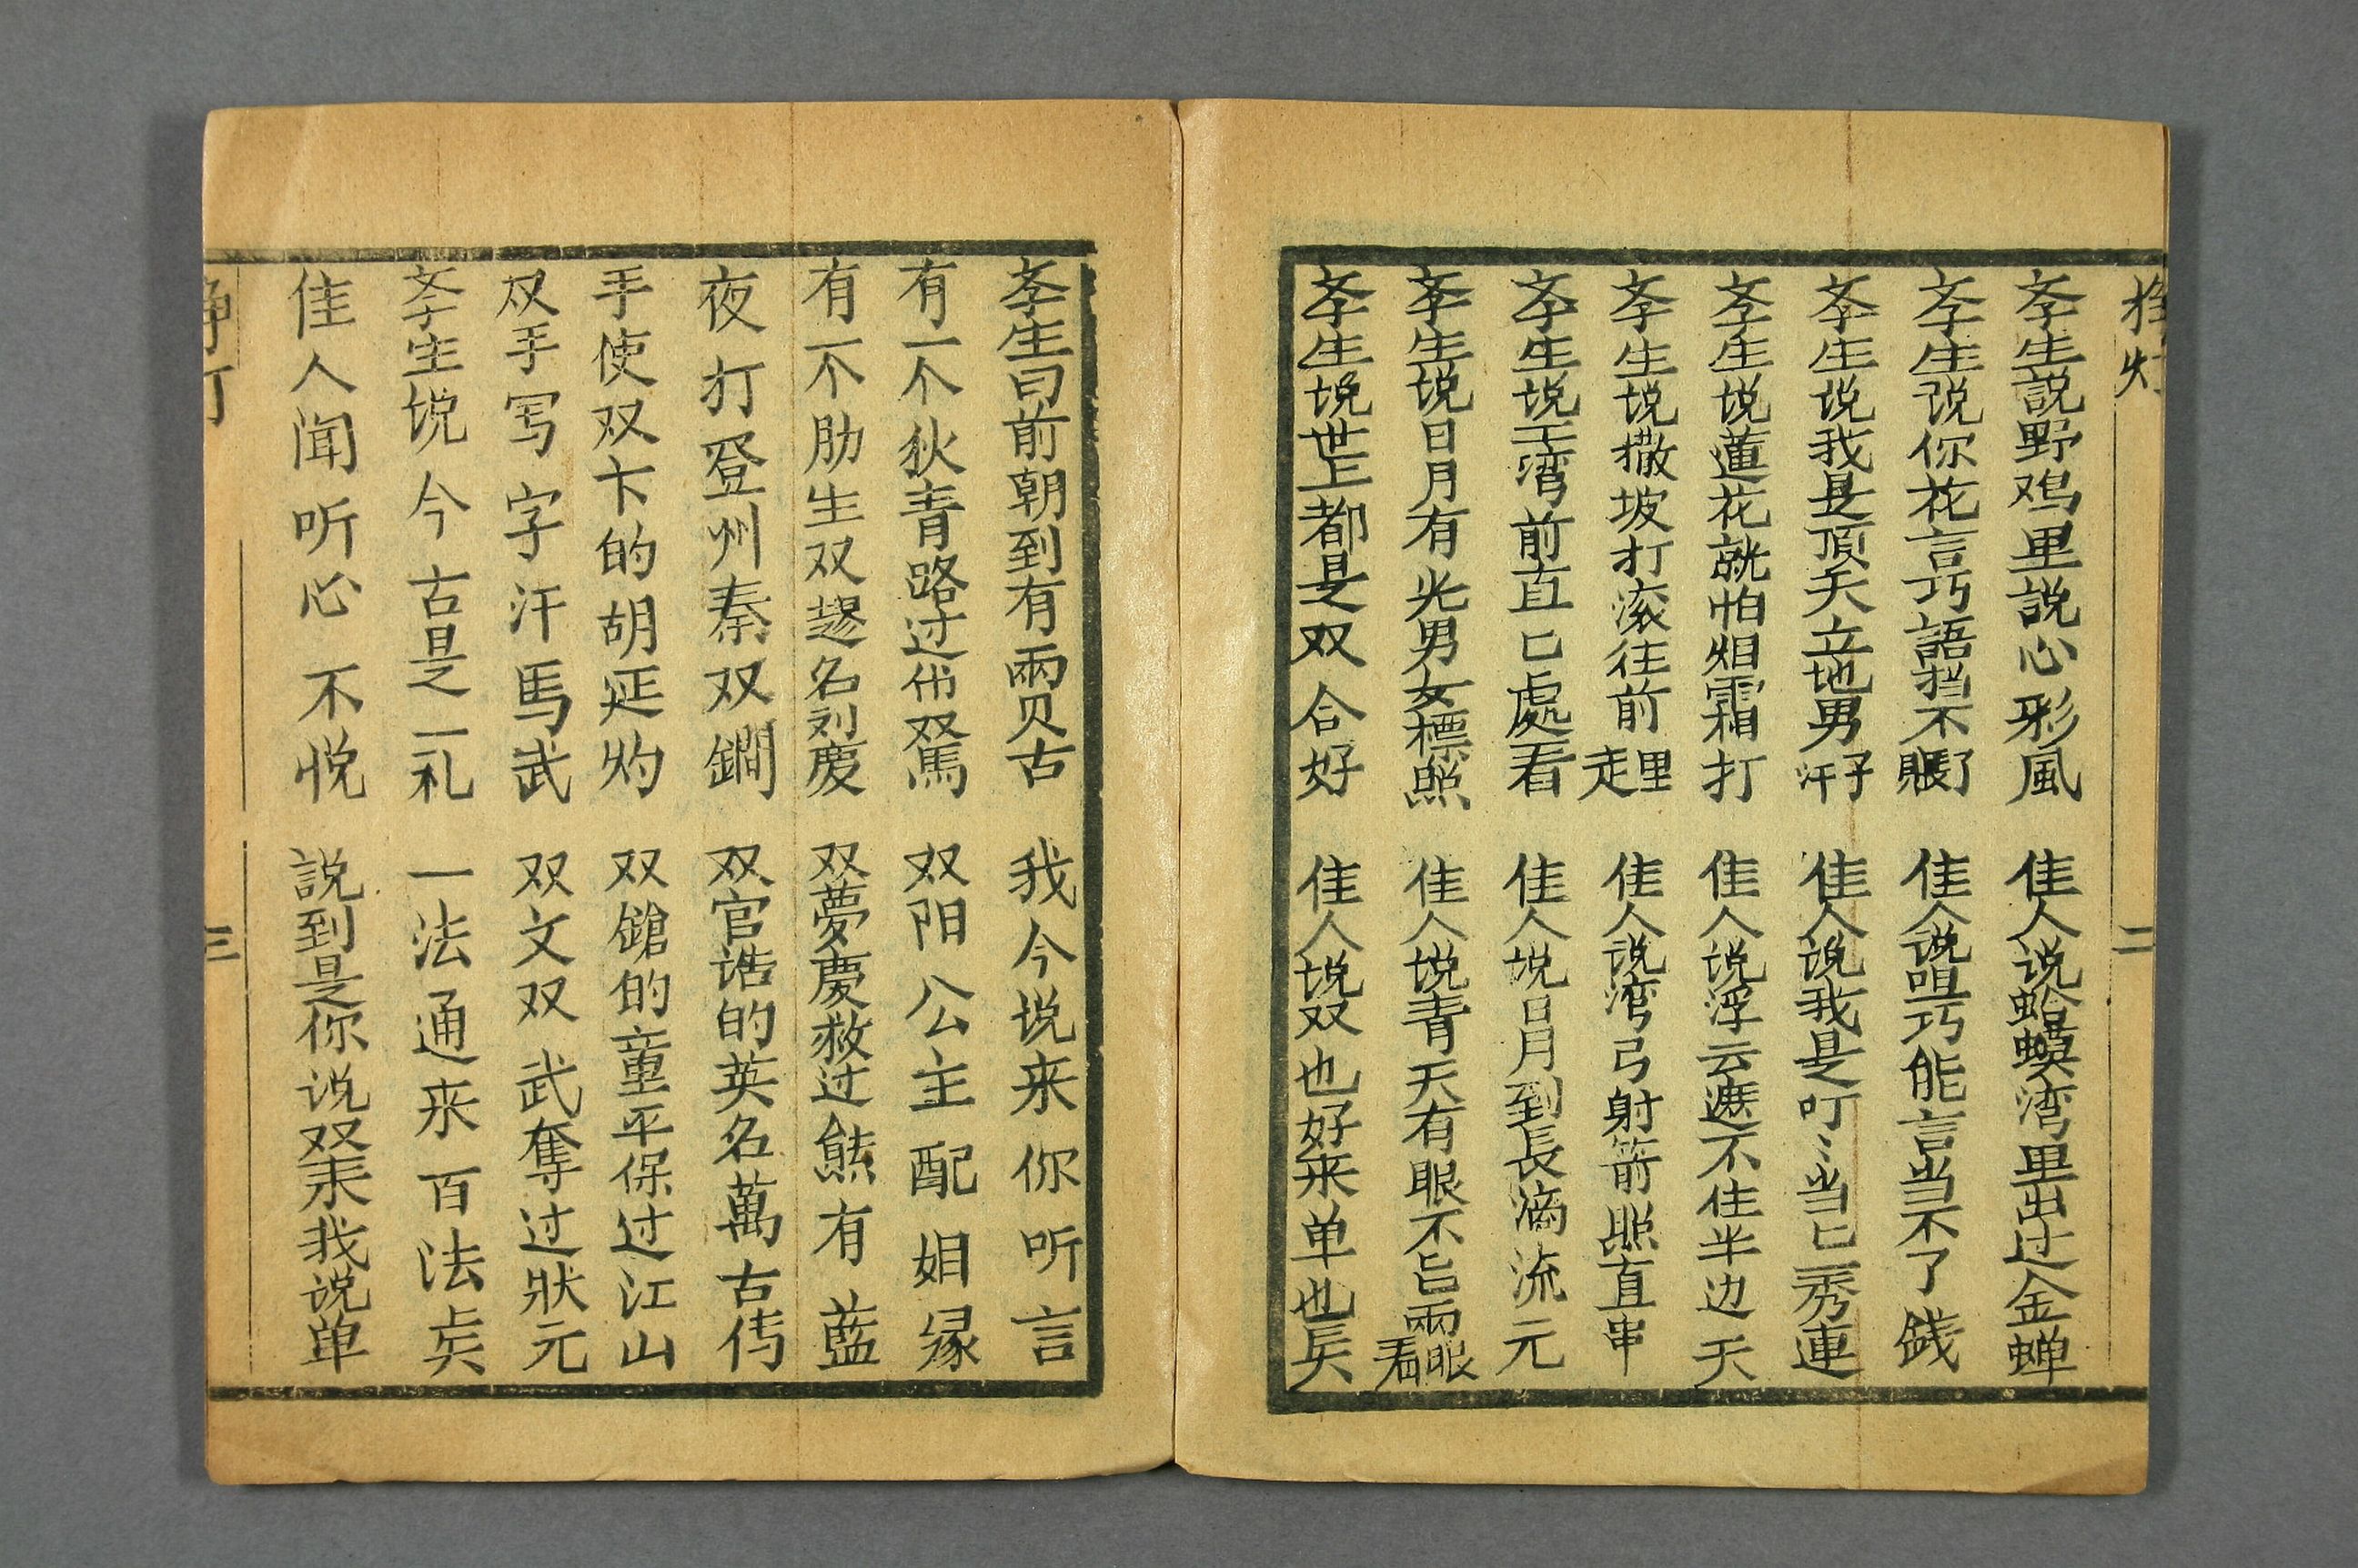 灯
二
斈生説野鸡里説心彩風　佳人说蛤蟆湾里出过金蝉
斈生说你花言巧語挡不了賬　佳人说咀巧能言当不了銭
斈生说我是頂天立地男子汗　佳人说我是叮〻当已秀連
斈生说蓮花就怕烟霜打　佳人说浮云遮不住半边天
斈生说撒坡打滚往前里走　佳人说湾弓射箭照直串
斈生说湾前直已處看　佳人说日月到長滴流元
斈生说日月有光男女標照　佳人说青天有眼不㠯兩眼看
斈生说世上都是双合好　佳人说双也好来单也
斈生曰前朝到有兩贝古　我今说来你听言
有一个狄青路过代双駡　双阳公主配姻缘
有一个肋生双翅名刘慶　双夢慶救过熊有藍
夜打登州秦双鐧　双官诰的英名萬古传
手使双卞的胡延灼　双鎗的童平保过江山
双手写字汗馬武　双文双武奪过狀元
斈生说今古是一礼　一法通来百法
佳人闻听心不悦　説到是你说双来我说单
三